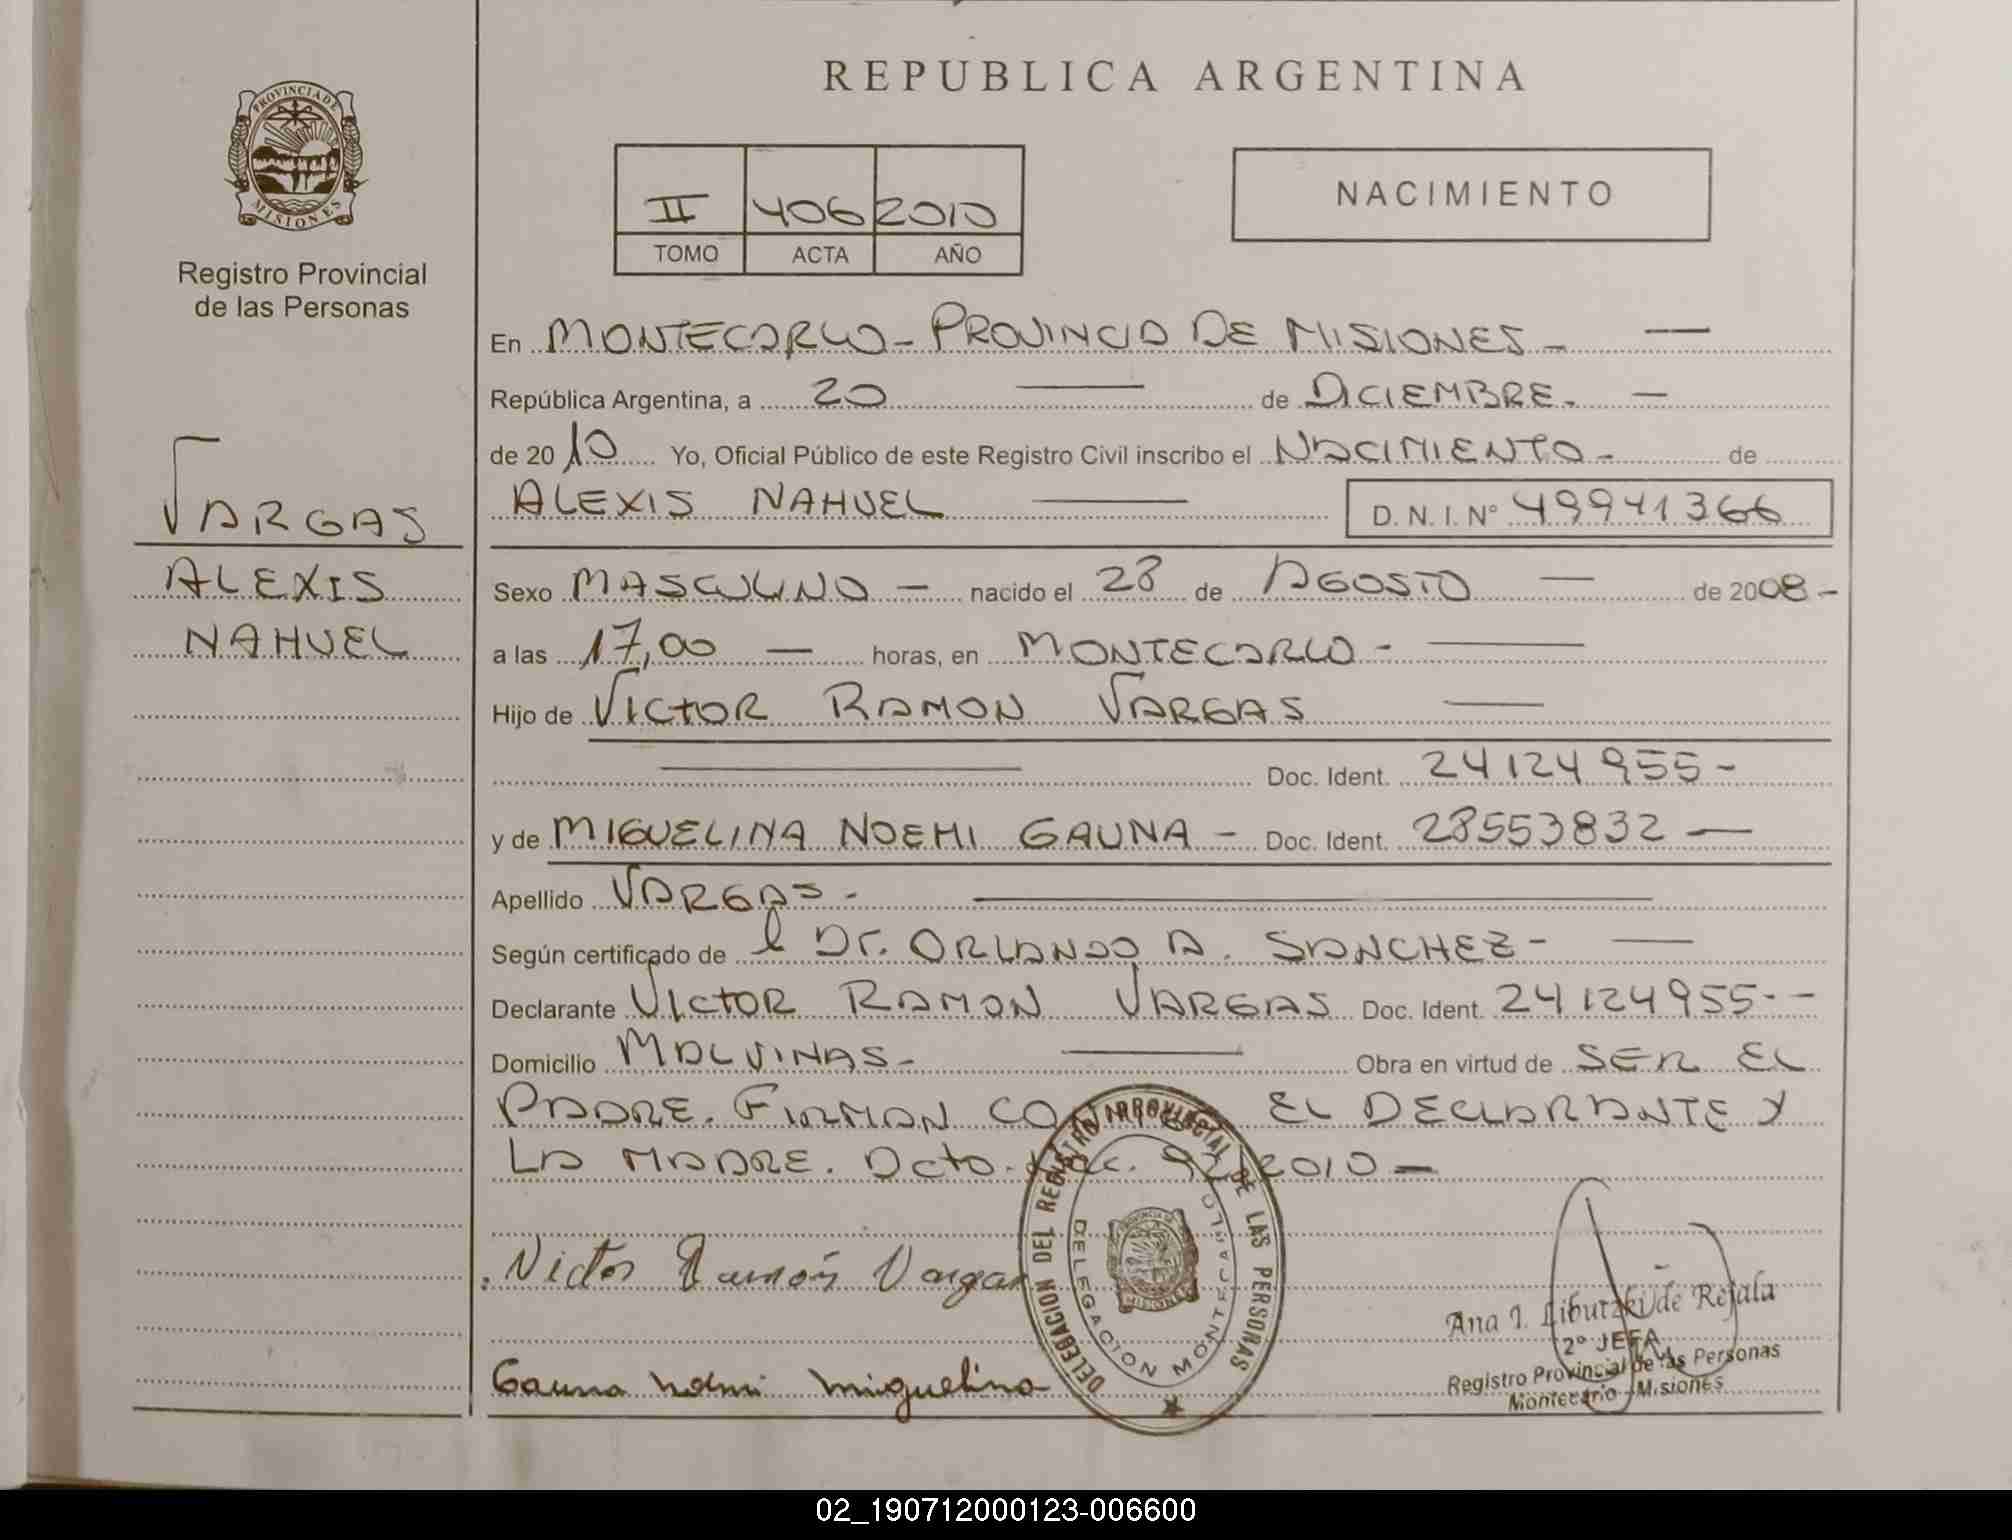 REPUBLICA ARGENTINA
PROVINCIA DE
MISIONES
Registro Provincial
de las Personas
II 406 2010
TOMO ACTA AÑO
NACIMIENTO
VARGAS
ALEXIS
NAHUEL
En MONTECARLO - PROVINCIA DE MISIONES -
República Argentina, a 20 de DICIEMBRE.
de 2010 Yo, Oficial Público de este Registro Civil inscribo el NACIMIENTO - de
ALEXIS NAHUEL D. N. I. N° 49941366
Sexo MASCULINO - nacido el 28 de AGOSTO - de 2008 -
a las 17,00 - horas, en MONTECARLO -
Hijo de VICTOR RAMON VARGAS
Doc. Ident. 24124955 -
y de MIGUELINA NOEMI GAUNA - Doc. Ident. 28553832 -
Apellido VARGAS -
Según certificado de l Dr. ORLANDO A. SANCHEZ -
Declarante VICTOR RAMON VARGAS Doc. Ident. 24124955 - -
Domicilio MALVINAS - Obra en virtud de SER EL
PADRE. FIRMAN EL DECLARANTE Y
LA MADRE. Dcto. 2010 -
Victor Ramón Vargas
Gauna Noemi Miguelina
DELEGACION DEL REGISTRO PROVINCIAL DE LAS PERSONAS
DELEGACION MONTECARLO
Ana I. Liburzki de Rejala
2° JEFA
Registro Provincial de las Personas
Montecarlo - Misiones
02_190712000123-006600